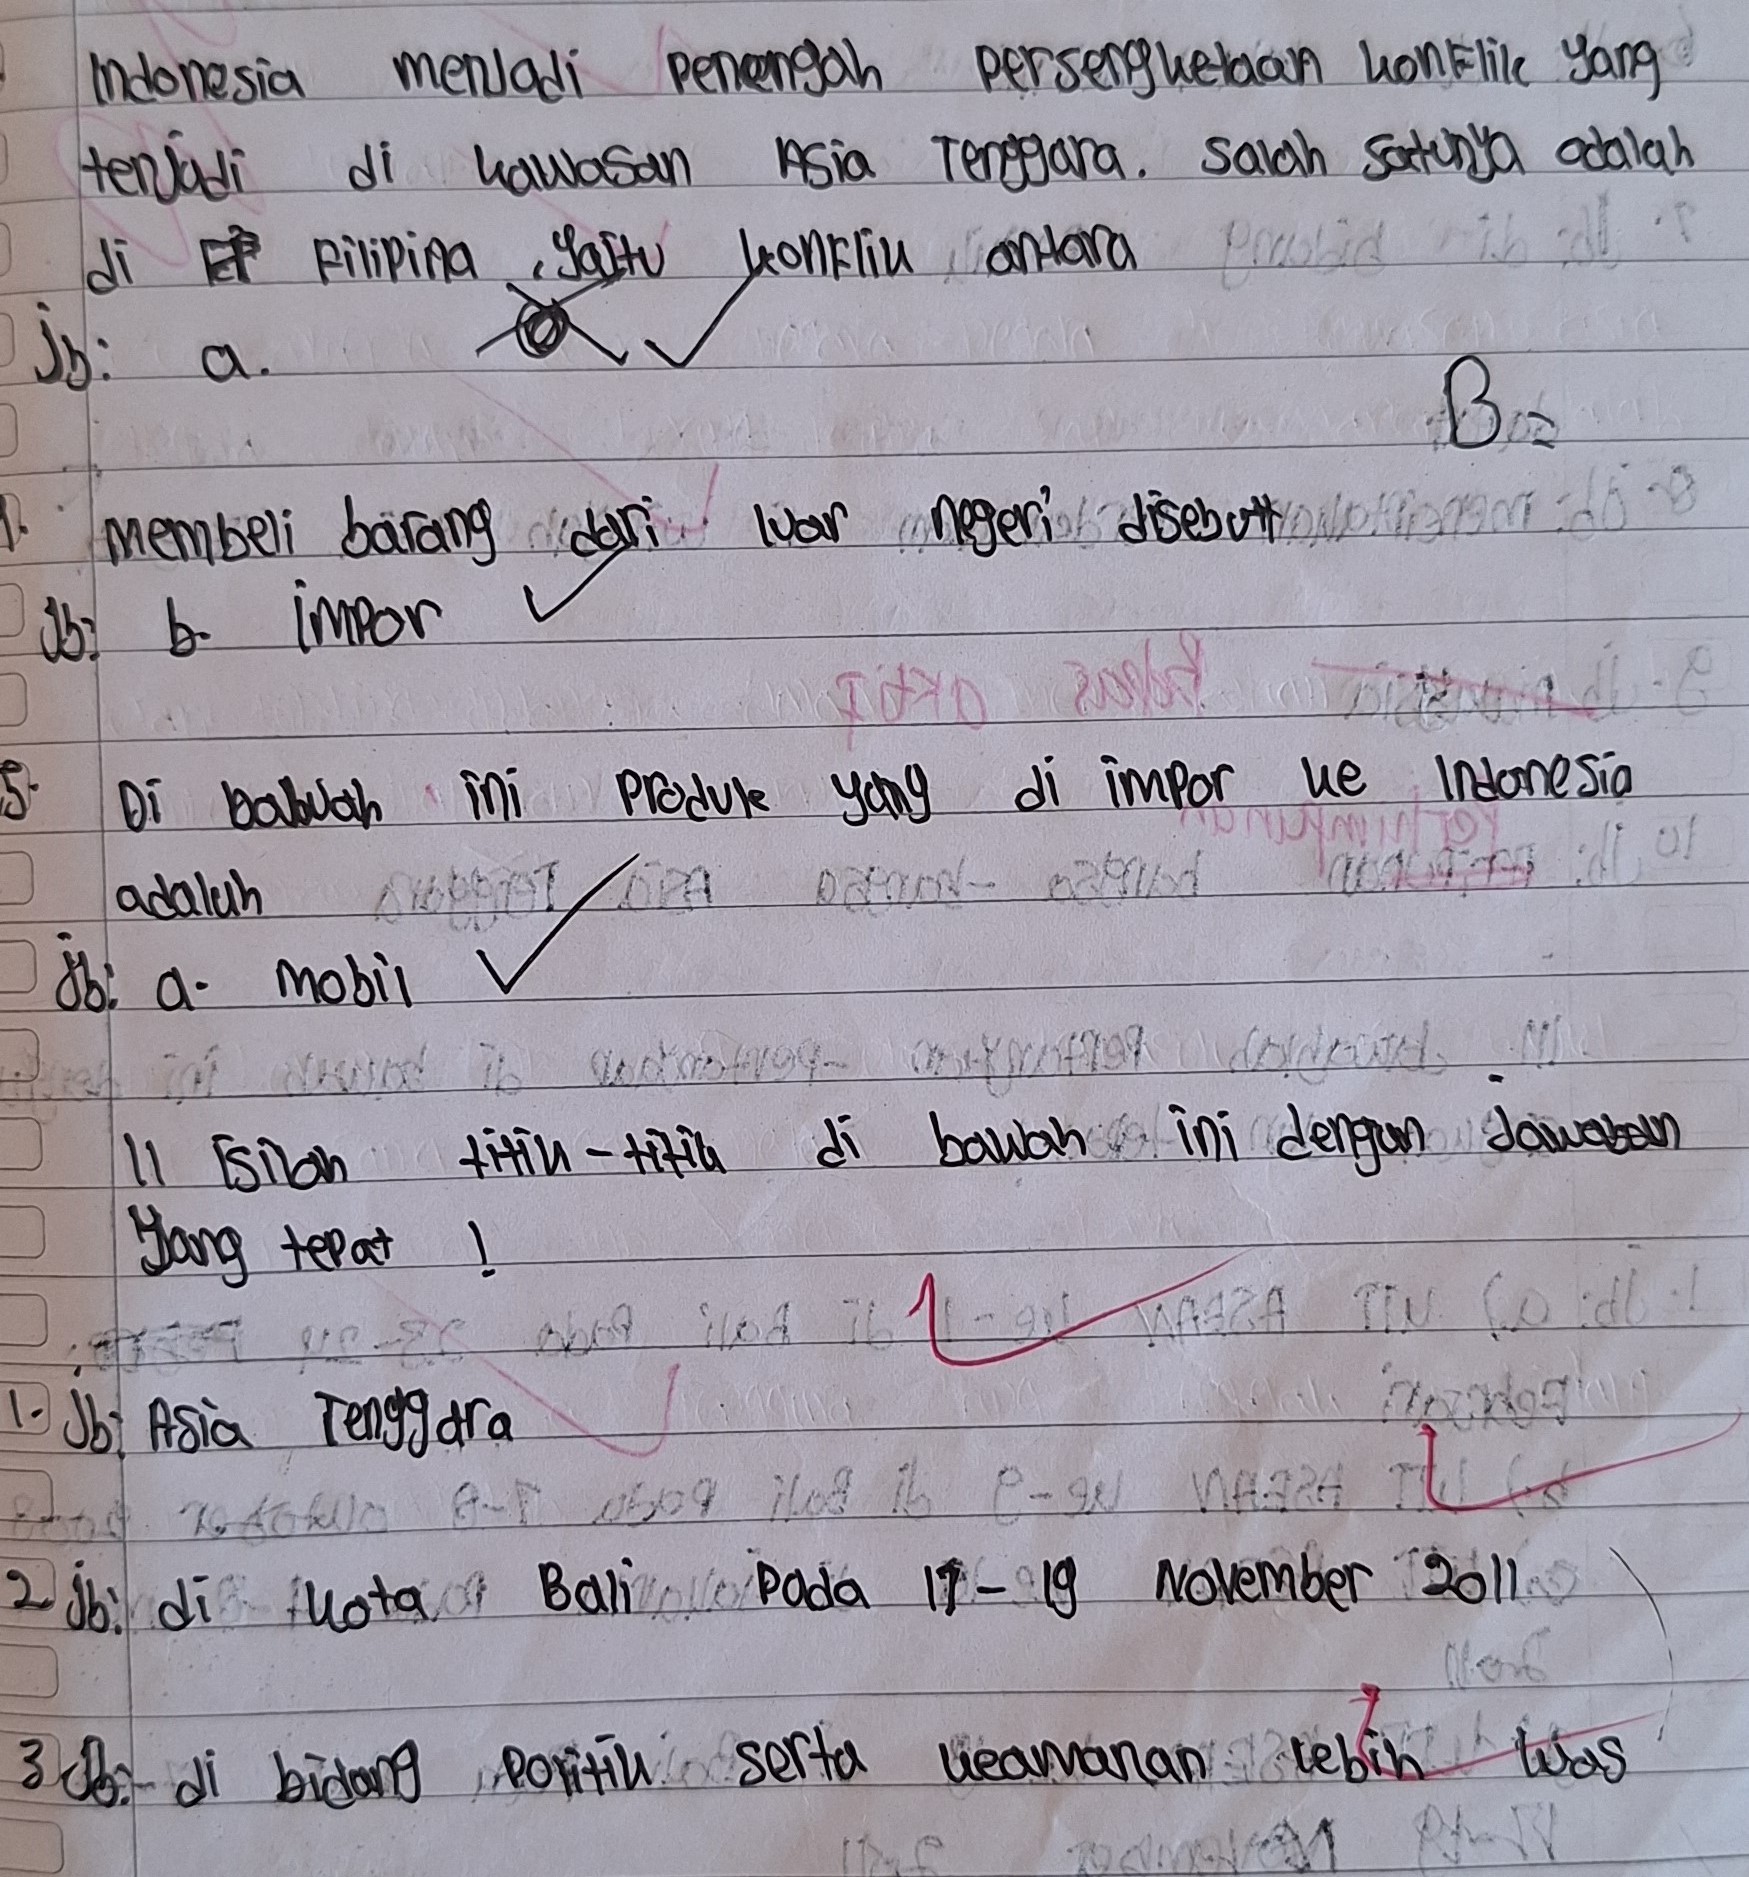 Indonesia menjadi penengah persengketaan konflik yang
terjadi di kawasan Asia Tenggara. salah satunya adalah
di Filipina, yaitu konflik antara
jb: a.
B=
membeli barang dari luar negeri disebut
Jb: b. impor
5. Di bawah ini produk yang di impor ke Indonesia
adalah
Jb: a. mobil
II Isilah titik-titik di bawah ini dengan jawaban
Yang tepat !
1. Jb: Asia Tenggara
2 Jb: di kota Bali pada 17-19 November 2011
3 Jb: di bidang politik serta keamanan lebih luas